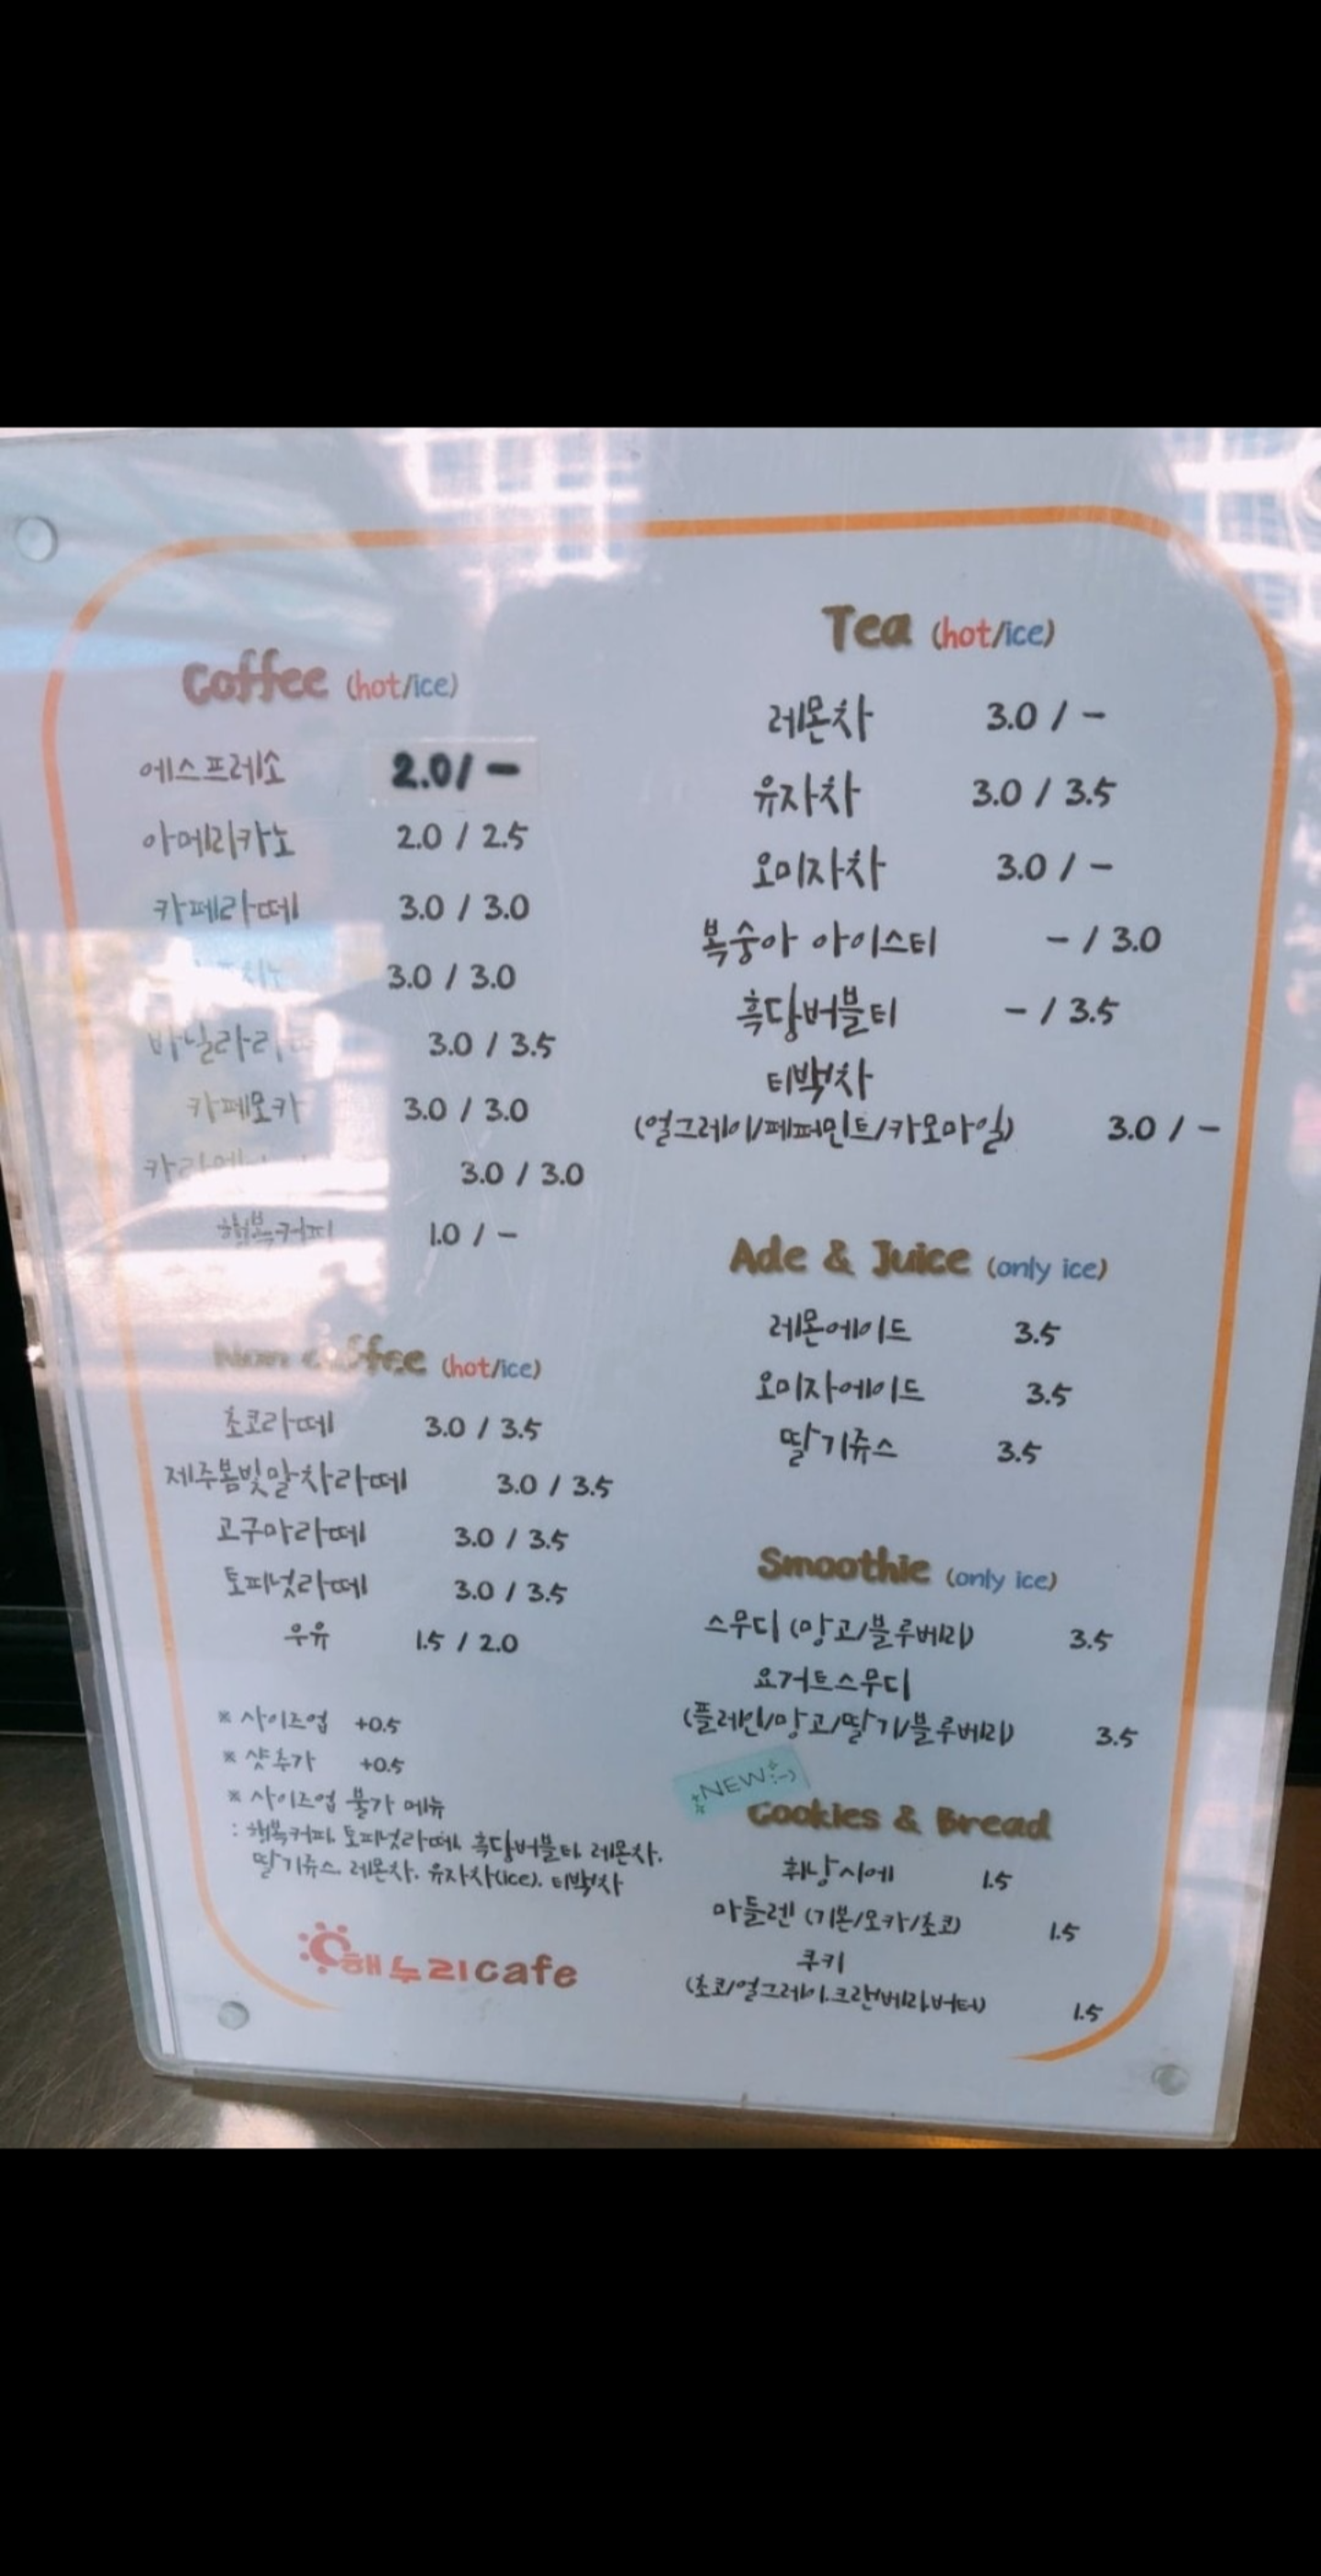 Coffee (hot/ice)
에스프레소 2.0/ -
아메리카노 2.0 / 2.5
카페라떼 3.0 / 3.0
3.0 / 3.0
3.0 / 3.5
카페모카 3.0 / 3.0
3.0 / 3.0
행복커피 1.0 / -
Non coffee (hot/ice)
초코라떼 3.0 / 3.5
제주봄빛말차라떼 3.0 / 3.5
고구마라떼 3.0 / 3.5
토피넛라떼 3.0 / 3.5
우유 1.5 / 2.0
※ 사이즈업 +0.5
※ 샷추가 +0.5
※ 사이즈업 불가 메뉴
: 행복커피, 토피넛라떼, 흑당버블티, 레몬차,
딸기쥬스, 레몬차, 유자차(ice), 티백차
해누리cafe
Tea (hot/ice)
레몬차 3.0 / -
유자차 3.0 / 3.5
오미자차 3.0 / -
복숭아 아이스티 - / 3.0
흑당버블티 - / 3.5
티백차
(얼그레이/페퍼민트/카모마일) 3.0 / -
Ade & Juice (only ice)
레몬에이드 3.5
오미자에이드 3.5
딸기쥬스 3.5
Smoothie (only ice)
스무디 (망고/블루베리) 3.5
요거트스무디
(플레인/망고/딸기/블루베리) 3.5
NEW:-)
Cookies & Bread
휘낭시에 1.5
마들렌 (기본/모카/초코) 1.5
쿠키
(초코/얼그레이,크랜베리,버터) 1.5